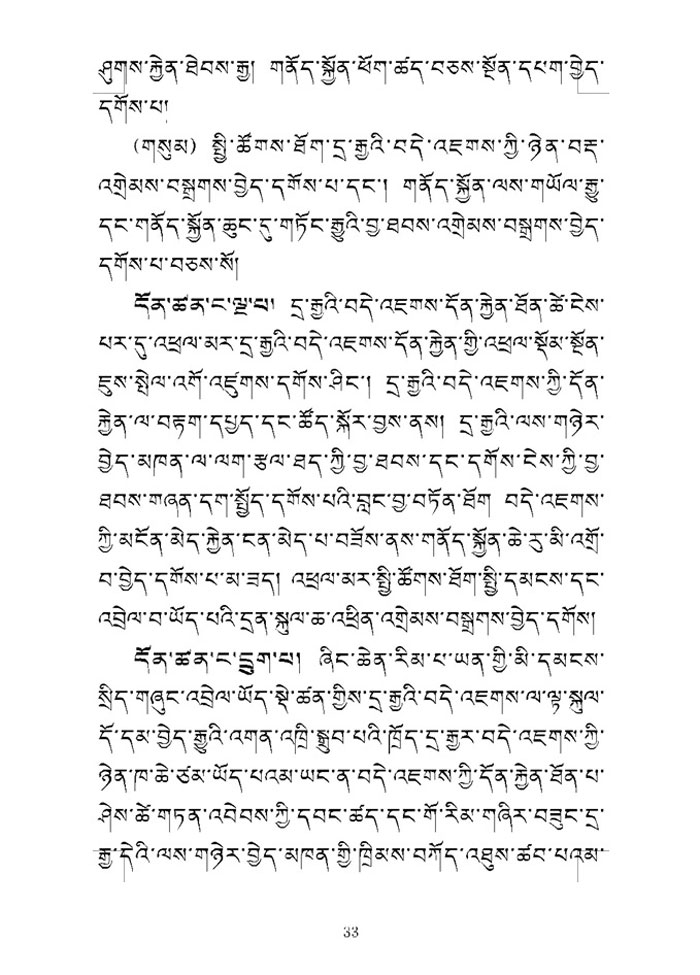 ཤུགས་རྐྱེན་ཐེབས་རྒྱ། གནོད་སྐྱོན་ཕོག་ཚད་བཅས་སྔོན་དཔག་བྱེད་
དགོས་པ།
(གསུམ) སྤྱི་ཚོགས་ཐོག་དྲ་རྒྱའི་བདེ་འཇགས་ཀྱི་ཉེན་བརྡ་
འགྲེམས་བསྒྲགས་བྱེད་དགོས་པ་དང་། གནོད་སྐྱོན་ལས་གཡོལ་རྒྱུ་
དང་གནོད་སྐྱོན་ཆུང་དུ་གཏོང་རྒྱུའི་བྱ་ཐབས་འགྲེམས་བསྒྲགས་བྱེད་
དགོས་པ་བཅས་སོ།
དོན་ཚན་ང་ལྔ་པ། དྲ་རྒྱའི་བདེ་འཇགས་དོན་རྐྱེན་ཐོན་ཚེ་ངེས་
པར་དུ་འཕྲལ་མར་དྲ་རྒྱའི་བདེ་འཇགས་དོན་རྐྱེན་གྱི་འཕྲལ་སྡོམ་སྔོན་
ཇུས་སྤེལ་འགོ་འཛུགས་དགོས་ཤིང་། དྲ་རྒྱའི་བདེ་འཇགས་ཀྱི་དོན་
རྐྱེན་ལ་བརྟག་དཔྱད་དང་ཚོད་སྐོར་བྱས་ནས། དྲ་རྒྱའི་ལས་གཉེར་
བྱེད་མཁན་ལ་ལག་རྩལ་ཐད་ཀྱི་བྱ་ཐབས་དང་དགོས་ངེས་ཀྱི་བྱ་
ཐབས་གཞན་དག་སྤྱོད་དགོས་པའི་བླང་བྱ་བཏོན་ཐོག བདེ་འཇགས་
ཀྱི་མངོན་མེད་རྐྱེན་ངན་མེད་པ་བཟོས་ནས་གནོད་སྐྱོན་ཆེ་རུ་མི་འགྲོ་
བ་བྱེད་དགོས་པ་མ་ཟད། འཕྲལ་མར་སྤྱི་ཚོགས་ཐོག་སྤྱི་དམངས་དང་
འབྲེལ་བ་ཡོད་པའི་དྲན་སྐུལ་ཆ་འཕྲིན་འགྲེམས་བསྒྲགས་བྱེད་དགོས།
དོན་ཚན་ང་དྲུག་པ། ཞིང་ཆེན་རིམ་པ་ཡན་གྱི་མི་དམངས་
སྲིད་གཞུང་འབྲེལ་ཡོད་སྡེ་ཚན་གྱིས་དྲ་རྒྱའི་བདེ་འཇགས་ལ་ལྟ་སྐུལ་
དོ་དམ་བྱེད་རྒྱུའི་འགན་འཁྲི་སྒྲུབ་པའི་ཁྲོད་དྲ་རྒྱར་བདེ་འཇགས་ཀྱི་
ཉེན་ཁ་ཆེ་ཙམ་ཡོད་པའམ་ཡང་ན་བདེ་འཇགས་ཀྱི་དོན་རྐྱེན་ཐོན་པ་
ཤེས་ཚེ་གཏན་འབེབས་ཀྱི་དབང་ཚད་དང་གོ་རིམ་གཞིར་བཟུང་དྲ་
རྒྱ་དེའི་ལས་གཉེར་བྱེད་མཁན་གྱི་ཁྲིམས་བཀོད་འཐུས་ཚབ་པའམ་
33